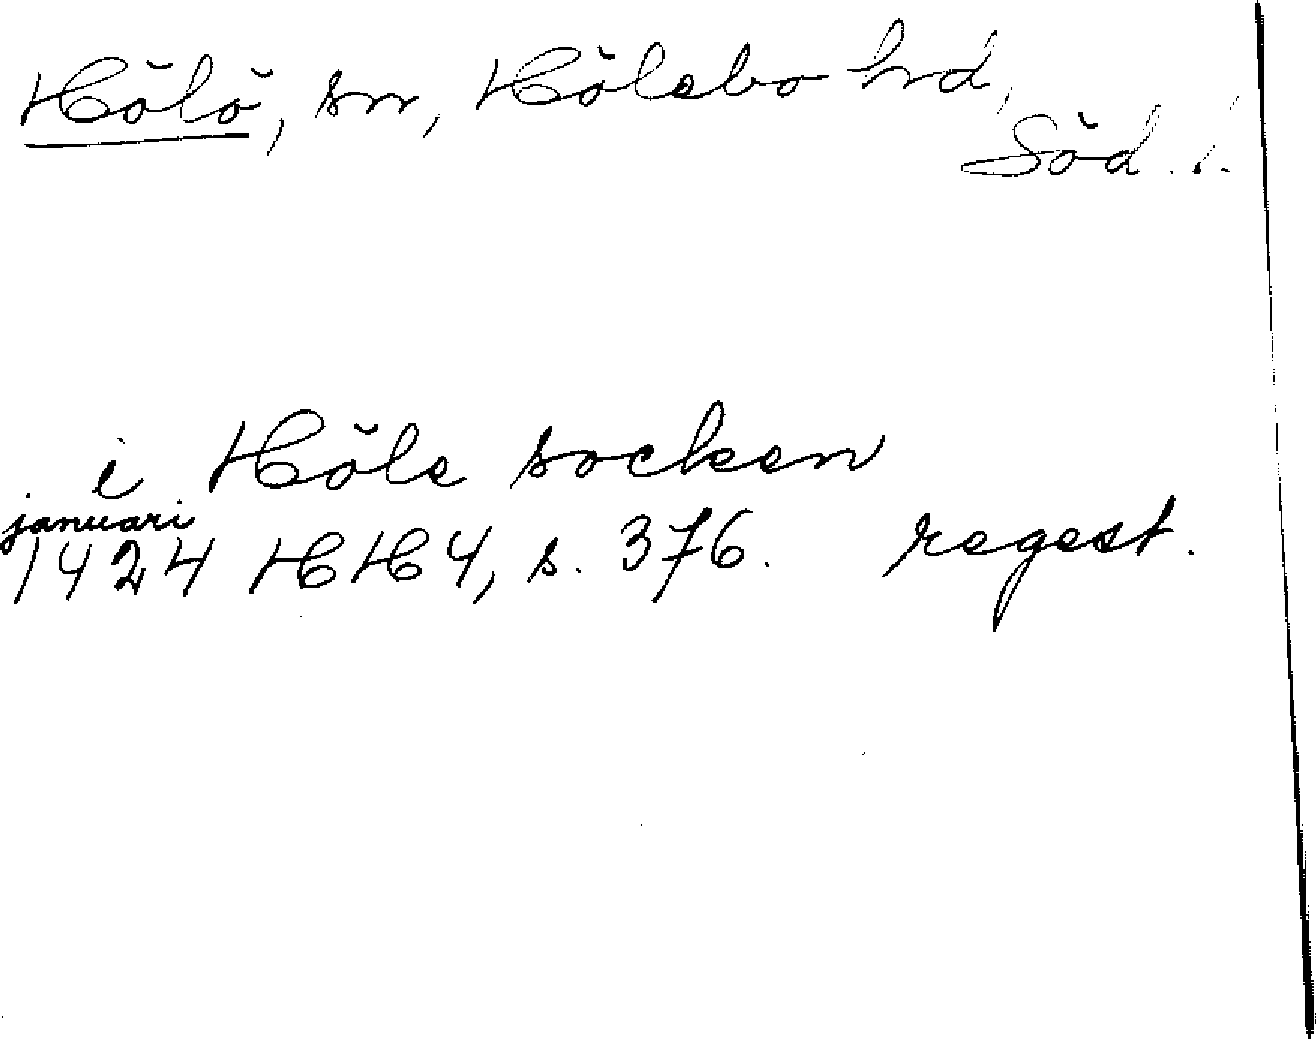 Hölö, sn, Hölebo hd,
Söd. l.
i Höle socken
januari
1424 HH 4, s. 376. regest.